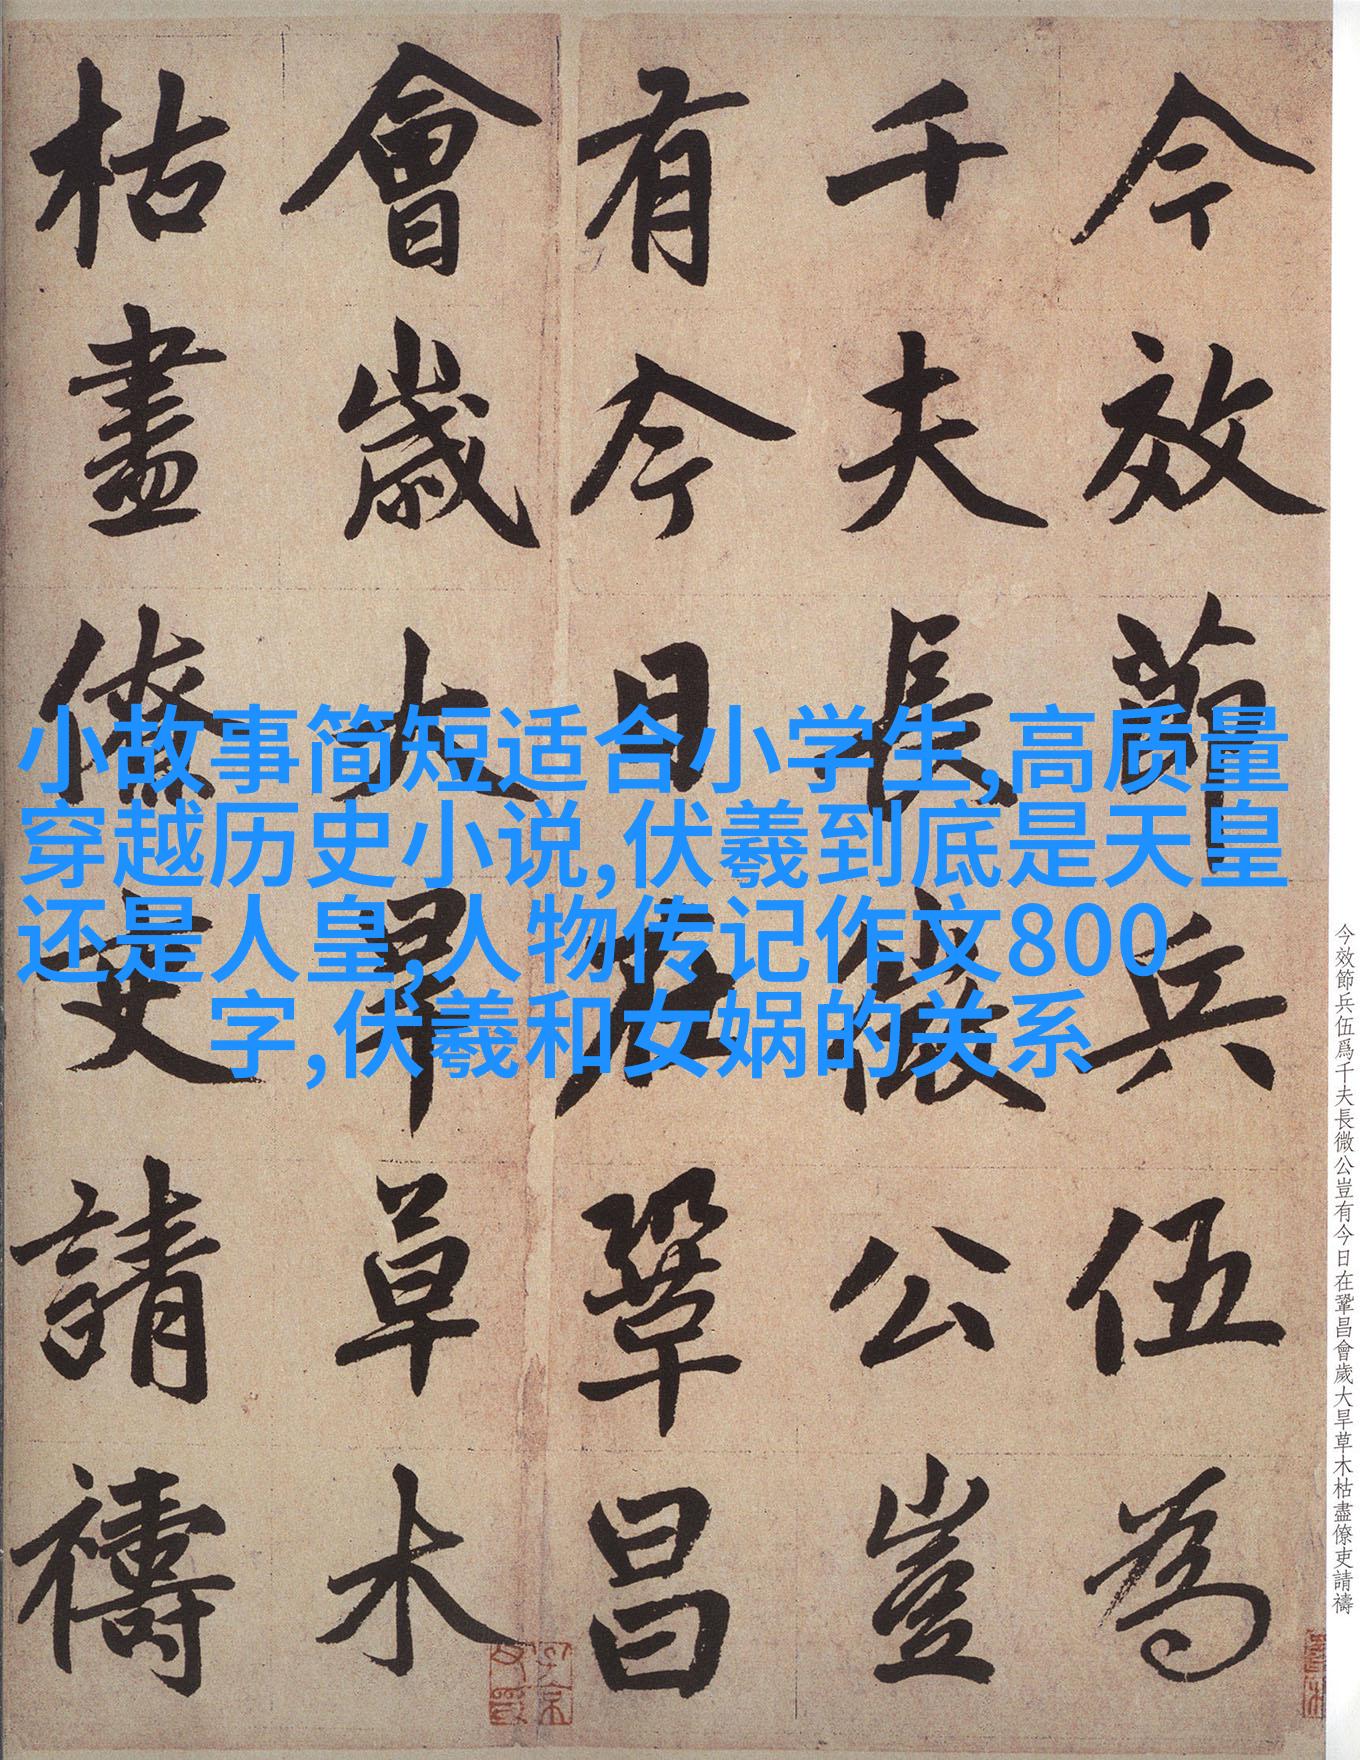 今效節兵伍為
千夫長微公豈
有今日在鞏昌
會歲大旱草木
枯盡僚吏請禱
小故事简短适合小学生,高质量
穿越历史小说,伏羲到底是天皇
还是人皇,人物传记作文800
字,伏羲和女娲的关系
今效節兵伍爲千夫長微公豈有今日在鞏昌會歲大旱草木枯盡僚吏請禱